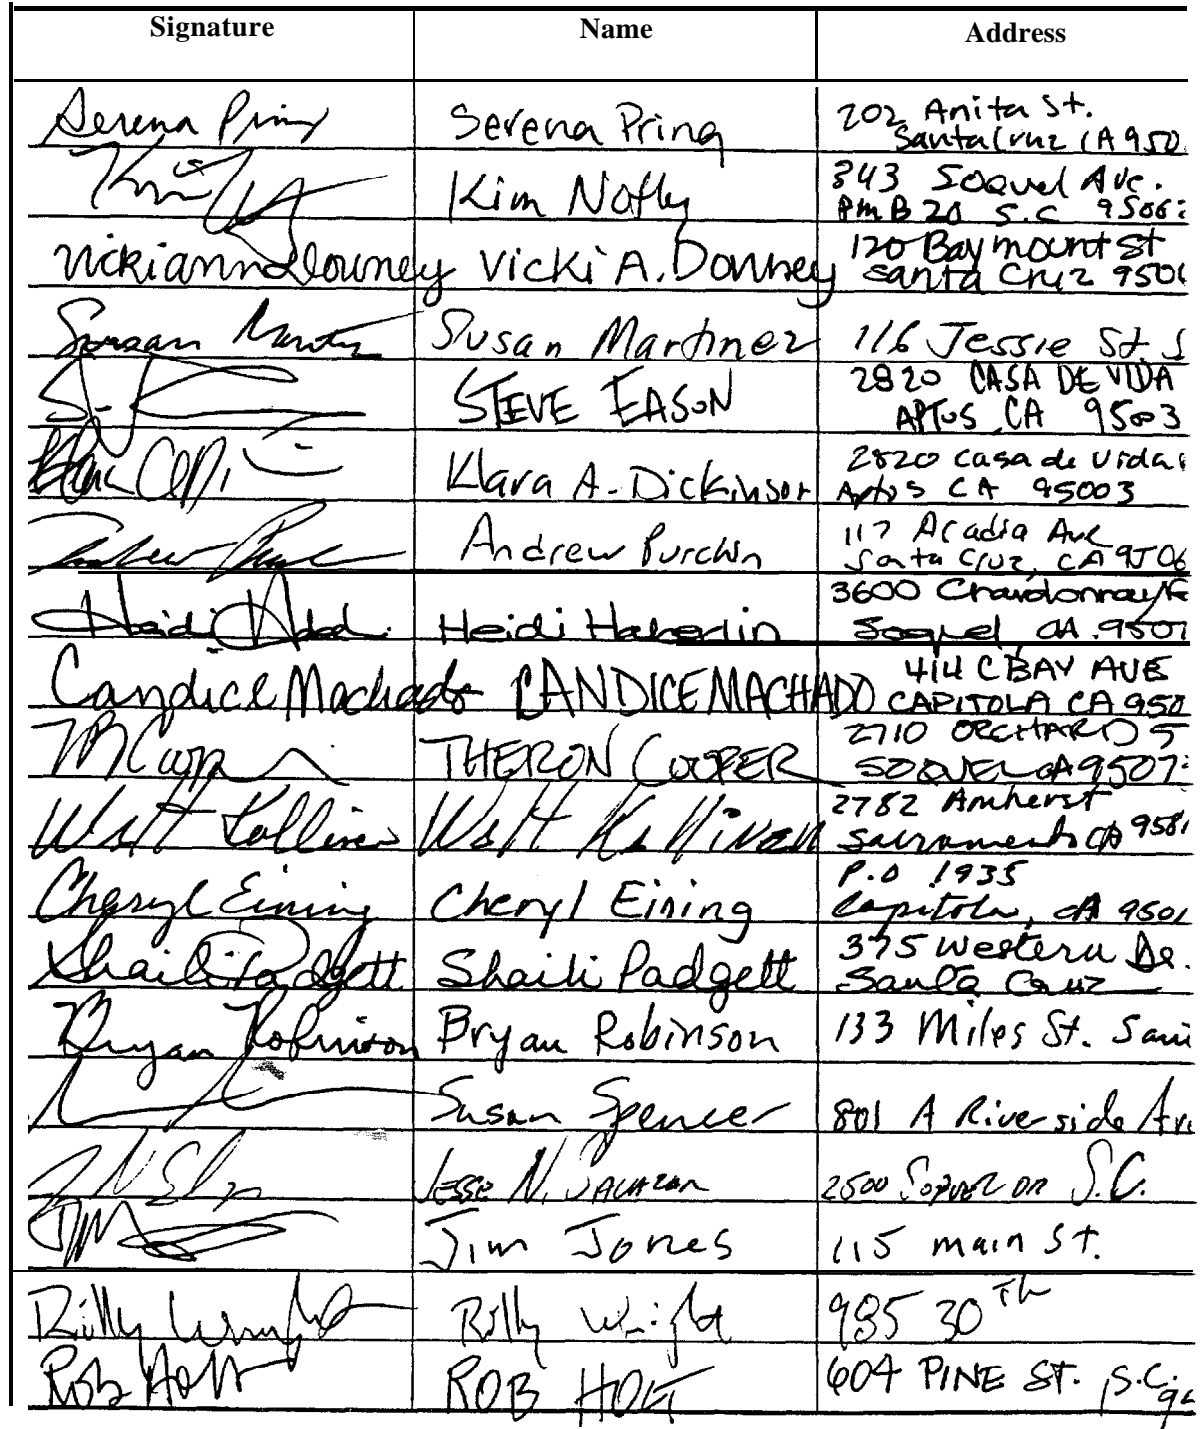 Signature Name Address
Serena Pring Serena Pring 202 Anita St.
Santa Cruz CA 950
Kim Kim Nofly 343 Soquel Ave.
PmB 20 S.C 9506
Vickiann Downey Vicki A. Downey 120 Baymount St
Santa Cruz 950
Susan Martinez Susan Martinez 116 Jessie St. S
STEVE EASON 2820 CASA DE VIDA
APTOS, CA 95003
Klara A. Dickinson 2820 Casa de Vida
Aptos CA 95003
Andrew Purchin Andrew Purchin 117 Acadia Ave
Santa Cruz, CA 9506
Heidi Heidi 3600 Chardonnay
Soquel CA. 9507
Candice Machado CANDICE MACHADO 414 C BAY AVE
CAPITOLA CA 950
Cooper THERON COOPER 2710 ORCHARD S
SOQUEL CA 9507
Walt Walt 2782 Amherst
Sacramento CA 958
Cheryl Eining Cheryl Eining P.O 1935
Capitola, CA 950
Shaili Padgett Shaili Padgett 375 Western Dr.
Santa Cruz
Bryan Robinson Bryan Robinson 133 Miles St. San
Susan Spencer 801 A Riverside Av
Jesse N. Salazar 2500 Soquel DR S.C.
Jim Jones 115 main St.
Billy Wright Billy Wright 985 30th
Rob Holt ROB HOLT 604 PINE ST. S.C.